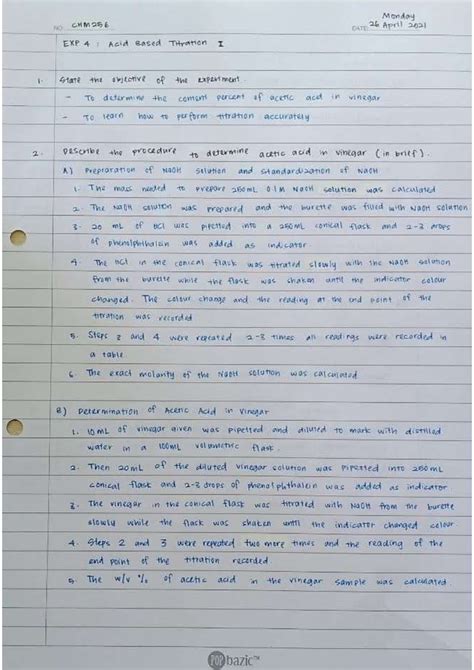 NO. CHM256
Monday
DATE: 26 April 2021
EXP 4 : Acid Based Titration I
1. State the objective of the experiment.
- To determine the content percent of acetic acid in vinegar
- To learn how to perform titration accurately
2. Describe the procedure to determine acetic acid in vinegar (in brief).
A) Preparation of NaOH solution and standardization of NaOH
1. The mass needed to prepare 250mL 0.1M NaOH solution was calculated
2. The NaOH solution was prepared and the burette was filled with NaOH solution
3. 20 mL of HCl was pipetted into a 250mL conical flask and 2-3 drops
of phenolphthalein was added as indicator.
4. The HCl in the conical flask was titrated slowly with the NaOH solution
from the burette while the flask was shaken until the indicator colour
changed. The colour change and the reading at the end point of the
titration was recorded
5. Steps 3 and 4 were repeated 2-3 times all readings were recorded in
a table.
6. The exact molarity of the NaOH solution was calculated
B) Determination of Acetic Acid in Vinegar
1. 10mL of vinegar given was pipetted and diluted to mark with distilled
water in a 100mL volumetric flask.
2. Then 20mL of the diluted vinegar solution was pipetted into 250mL
conical flask and 2-3 drops of phenolphthalein was added as indicator
3. The vinegar in the conical flask was titrated with NaOH from the burette
slowly while the flask was shaken until the indicator changed colour
4. Steps 2 and 3 were repeated two more times and the reading of the
end point of the titration recorded.
5. The w/v % of acetic acid in the vinegar sample was calculated.
POP bazic™